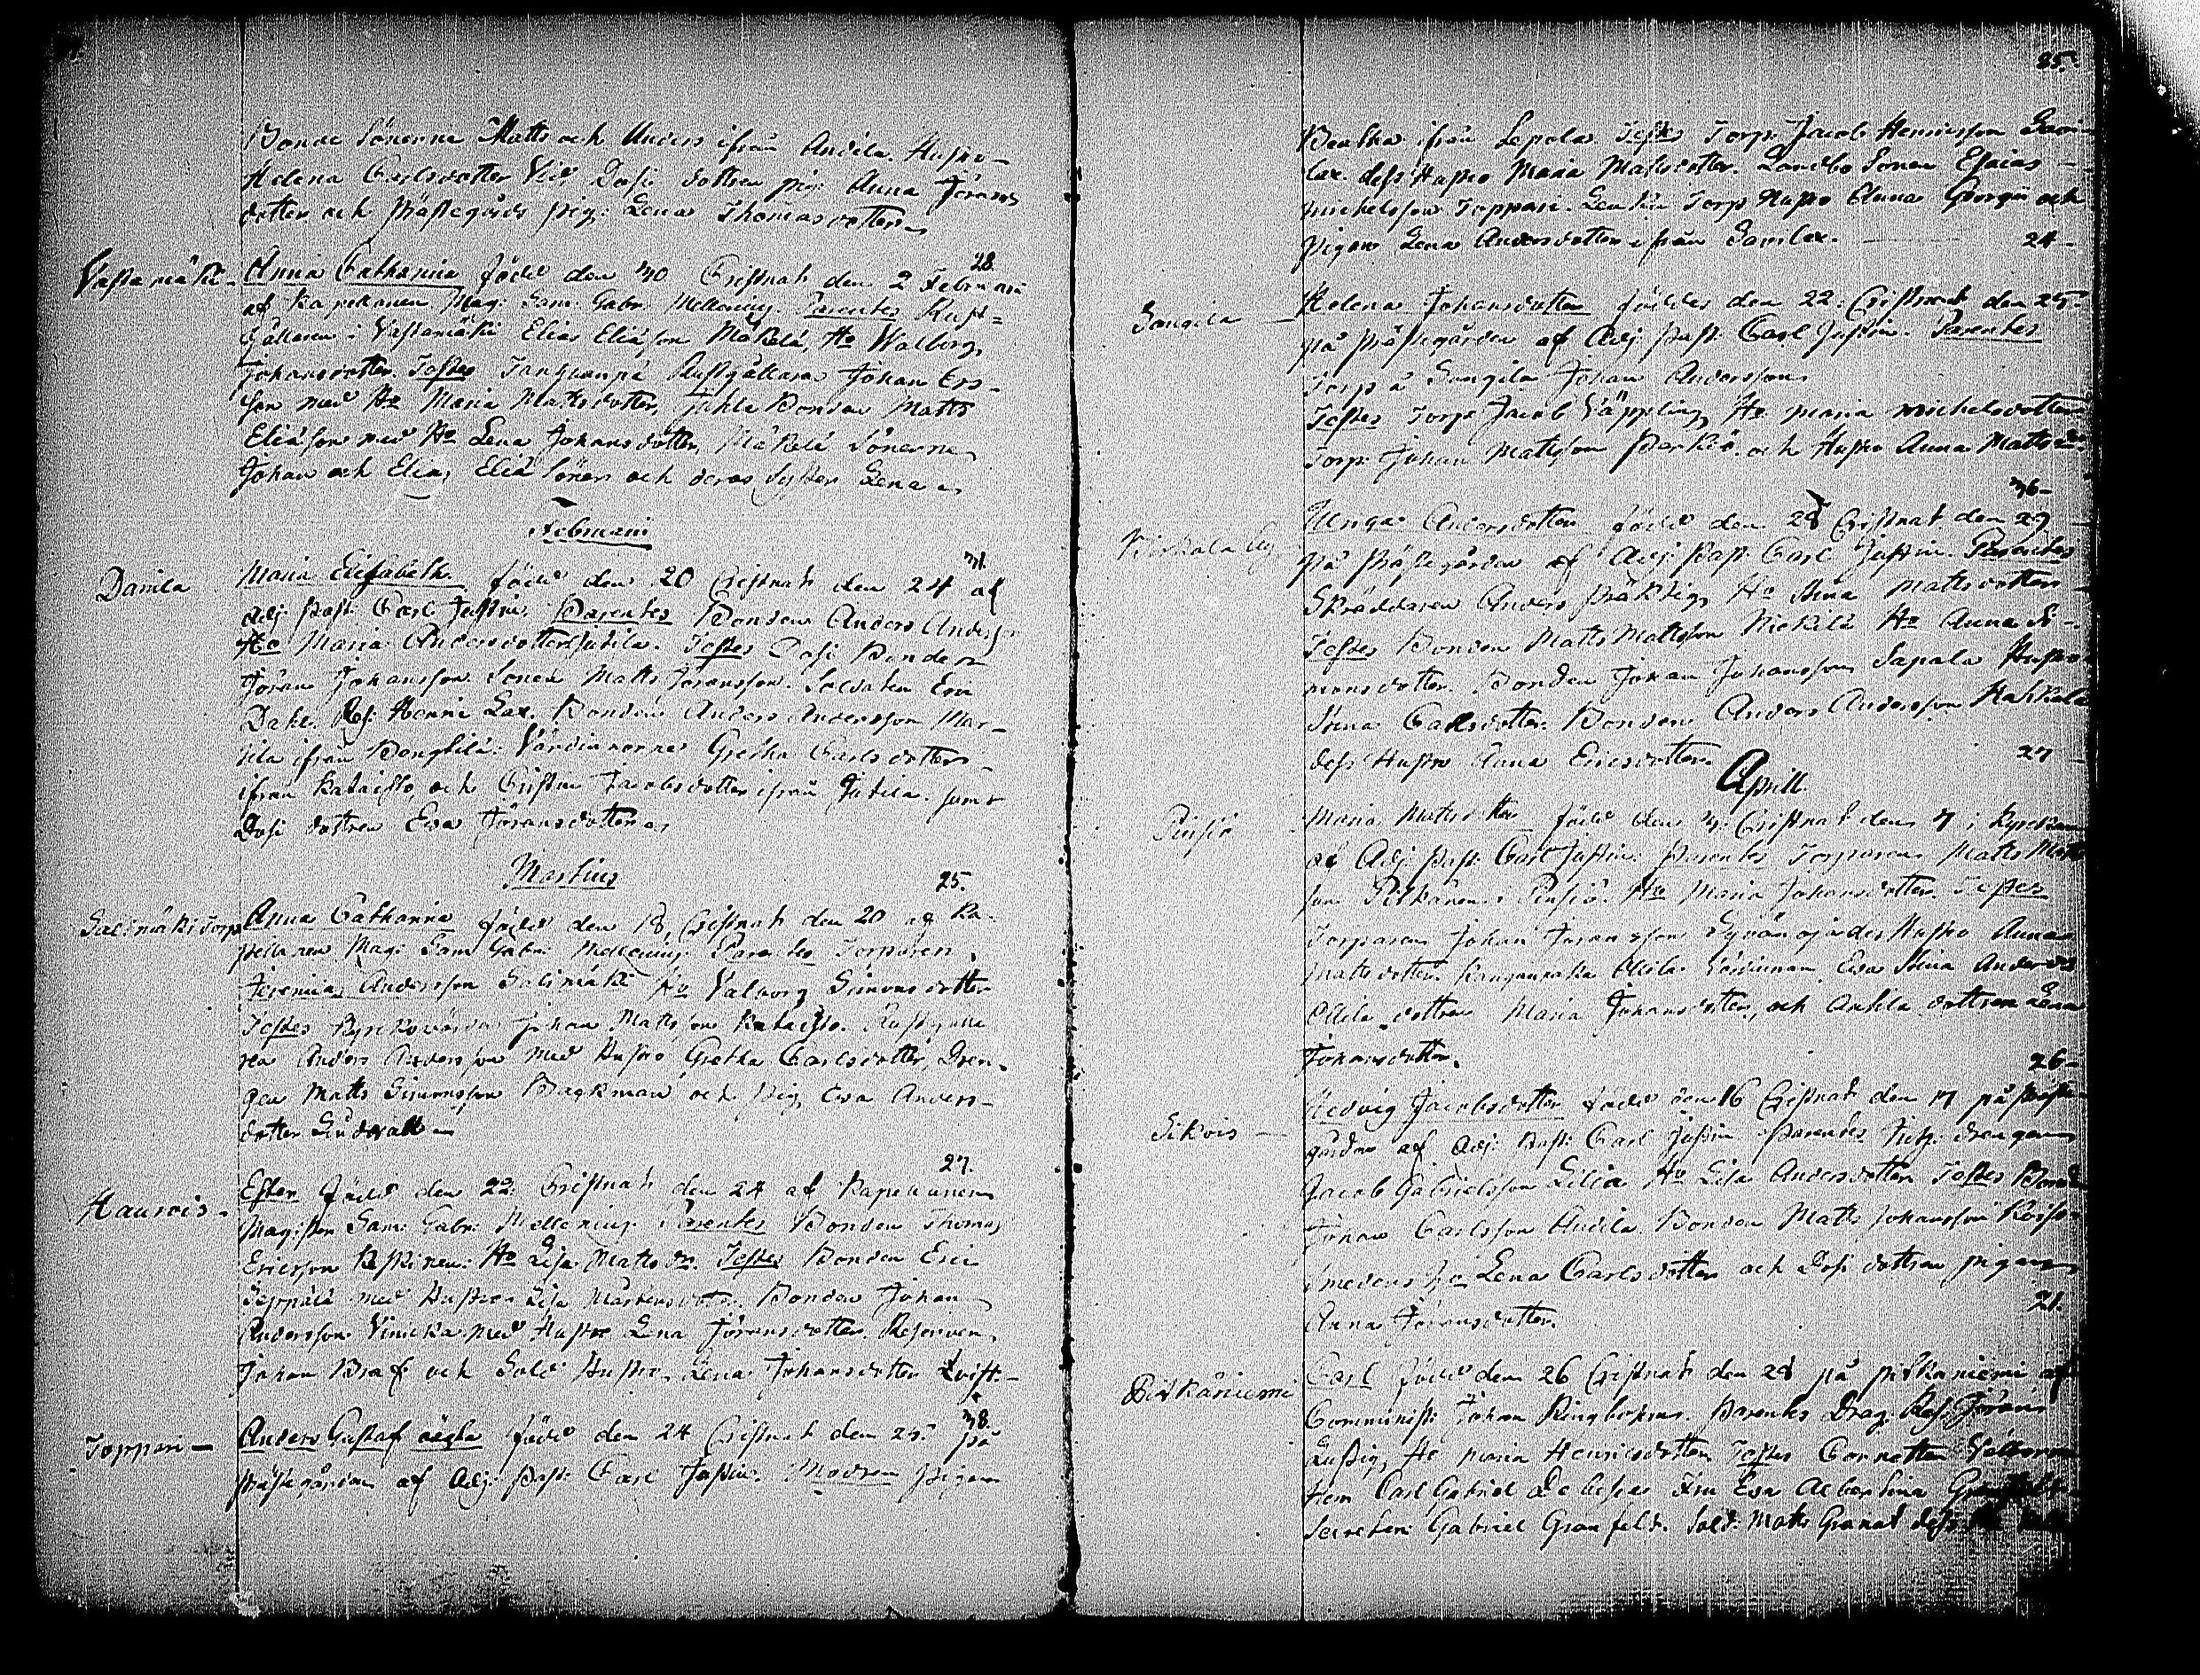 Bonde Sönerne Matts och Anders ifrån Andila. Hustro
Helena Carlsdotter Dosi dottren pig: Anna Jörans
dotter och Prästegårds pig: Lena Thomasdotter
28.
Vastamäki Anna Catharina född den 30 Cristnat den 2 Februarii
af Kapellanen Mag: Sam: Gabr: Mellenius. Parentes Rust-
hållaren i Vastamäki Elias Eliasson Mäkelä, Ho Walborg
Johansdotter. Testes Rusthållaren Johan Ers-
son med Ho Maria Mattsdotter, Juhla Bonden Matts
Eliasson med Ho Lena Johansdotter, Mäkelä Sönerne
Johan och Elias Elia Söner och deras Syster Lena
Februarii
31.
Danila Maria Elisabeth född den 20 Cristnat den 24 af
Adj: Past: Carl Justin. Parentes Bonden Anders Andersson
Ho Maria Andersdotter Jutila. Testes Dosi Bonden
Jöran Johansson Sonen Matts Jöransson. Soldaten Eric
Dahl. Henric Lax. Bonden Anders Andersson Mar-
tila ifrån Bengtilä. Värdinnorne Gretha Carlsdotter
ifrån Kataisto, och Cristin Jacobsdotter ifrån Jutila samt
Dosi dottren Eva Jöransdotter
Martius
25.
Salimäki Torp Anna Catharina född den 18 Cristnat den 20 af Ka-
pellanen Mag: Sam: Gabr: Mellenius. Parentes Torparen
Jeremias Andersson Salimäki Ho Valborg Simonsdotter
Testes Kyrkovärden Johan Mattsson Kataisto. Rusthålla
ren Anders Andersson med Hustro Gretha Carlsdotter, Dren-
gen Matts Simonsson Backman och Pig: Eva Anders-
dotter
27.
Haurois Ester född den 22 Cristnat den 24 af Kapellanen
Magister Sam: Gabr: Mellenius. Parentes Bonden Thomas
Ericsson Ho Lisa Matts dr. Testes Bonden Eric
Seppälä med Hustro Lisa Mårtensdotter. Bonden Johan
Andersson Vinicka med Hustro Lena Jöransdotter. Reserven
Johan Braf och Sold: Hustro Lena Johansdotter Qvist.
38.
Toppari Anders Gustaf oägta född den 24 Cristnat den 25 på
Prästegården af Adj: Past: Carl Justin. Modren Pigan
25.
Beatha ifrån Lepola. Testes Torp: Jacob Henricsson Savi-
lax dess Hustro Maria Mattsdotter. Landbo Sonen Esaias
Michelsson Toppari. Torp Hustro Anna Georgii och
Pigan Lena Andersdotter ifrån Savilax.
24
Songila Helena Johansdotter föddes den 22. Cristnat den 25
på Prästegården af Adj: Past: Carl Justin. Parentes
Torp: å Songila Johan Andersson
Testes Torp: Jacob Väppling Ho Maria Michelsdotter
Torp: Johan Mattsson Perkiö och Hustro Anna Matts dr.
36
Kirkola By Ulrica Andersdotter född den 28 Cristnat den 29
på Prästegården af Adj: Past: Carl Justin. Parentes
Skräddaren Anders Präktig Ho Stina Mattsdotter
Testes Bonden Matts Mattsson Nickilä Ho Anna Si-
monsdotter. Bonden Johan Johansson Sapala Hustro
Stina Carlsdotter. Bonden Anders Andersson Hahkala
dess Hustro Anna Ericsdotter
27
Aprill.
Pinsiö Maria Mattsdotter född den 3. Cristnat den 7 i Kyrckan
af Adj: Past: Carl Justin. Parentes Torparen Matts Matts
son Pitkänen i Pinsiö. Ho Maria Johansdotter. Testes
Torparen Johan Jöransson Syvänoja des Hustro Anna
Mattsdotter. Ollila Värdinnan Eva Stina Andersdr
Ollila dottren Maria Johansdotter, och Anttila dottren Lena
Johansdotter.
26
Sikois Hedvig Jacobsdotter född den 16 Cristnat den 17 på Präste-
gården af Adj: Past: Carl Justin Parentes drengen
Jacob Gabrielsson Lilia Ho Lisa Andersdotter Testes Bonden
Johan Carlsson Andila Bonden Matts Johansson
Smedens Ho Lena Carlsdotter och Dosi dottren pigan
Anna Jöransdotter.
21.
Pitkäniemi Carl född den 26 Cristnat den 28 på Pitkäniemi af
Comminist: Johan Ringbohm. Parentes Drag: Res: Jöran
Lustig, Ho Maria Henricsdotter Testes Cornetten
Carl Gabriel De Besche Fru Eva Albertina
Gabriel Granfelt. Sold: Matts Granat dess